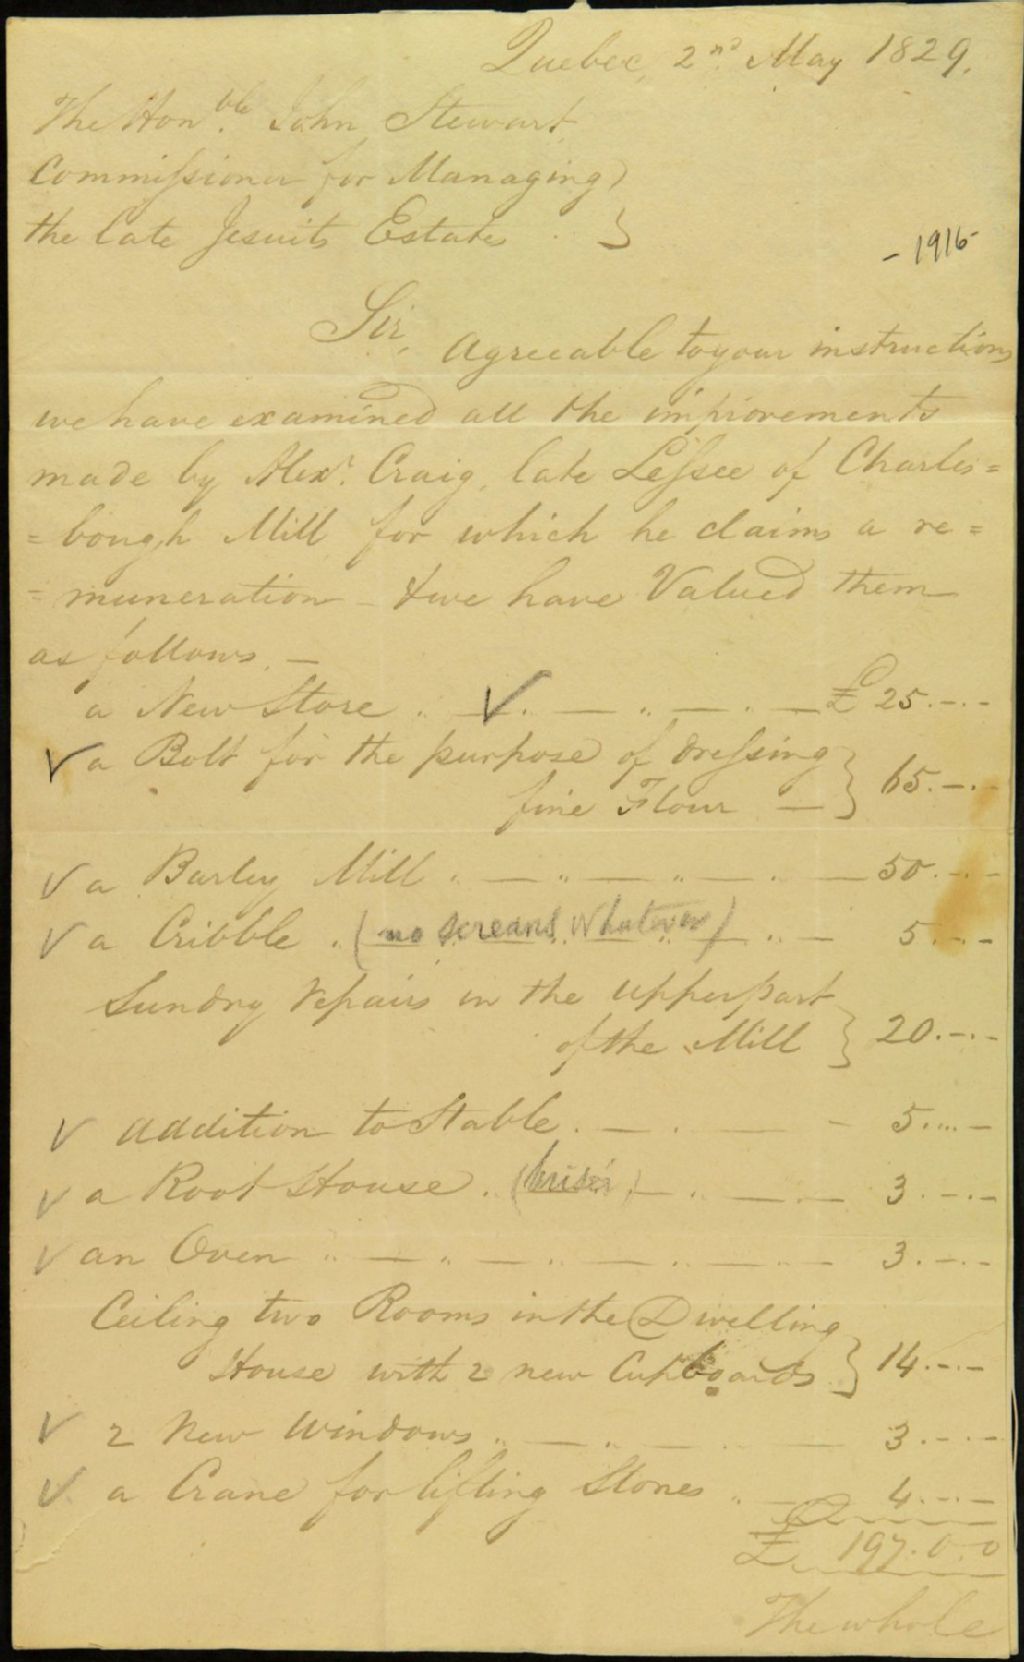 Quebec, 2nd May 1829.
The Honble. John Stewart
Commissioner for Managing }
the late Jesuits Estates . }
- 1916 -
Sir,
Agreeable to your instructions
we have examined all the improvements
made by Alexr. Craig, late Lessee of Charles=
=bough Mill for which he claims a re=
=muneration - & we have Valued them
as follows. -
a New Store .. — .. — .. — .. — £ 25.-.-
√ a Bolt for the purpose of dressing }
fine Flour — } 65.-.-
√ a Barley Mill . — .. — .. — .. — 50.-.-
√ a Cribble . (no screans Whatever) .. — 5.-.-
Sundry repairs in the upper part }
of the Mill } 20.-.-
√ addition to Stable . — . — - 5....-
√ a Root House . ( ) — .. — .. — 3.-.-
√ an Oven .. — .. — .. — .. — .. — 3.-.-
Ceiling two Rooms in the Dwelling }
House with 2 new Cupboards } 14.-.-
√ 2 New Windows .. — .. — .. — 3.-.-
√ a Crane for lifting Stones .. — 4.-.-
£ 197.0.0
The whole